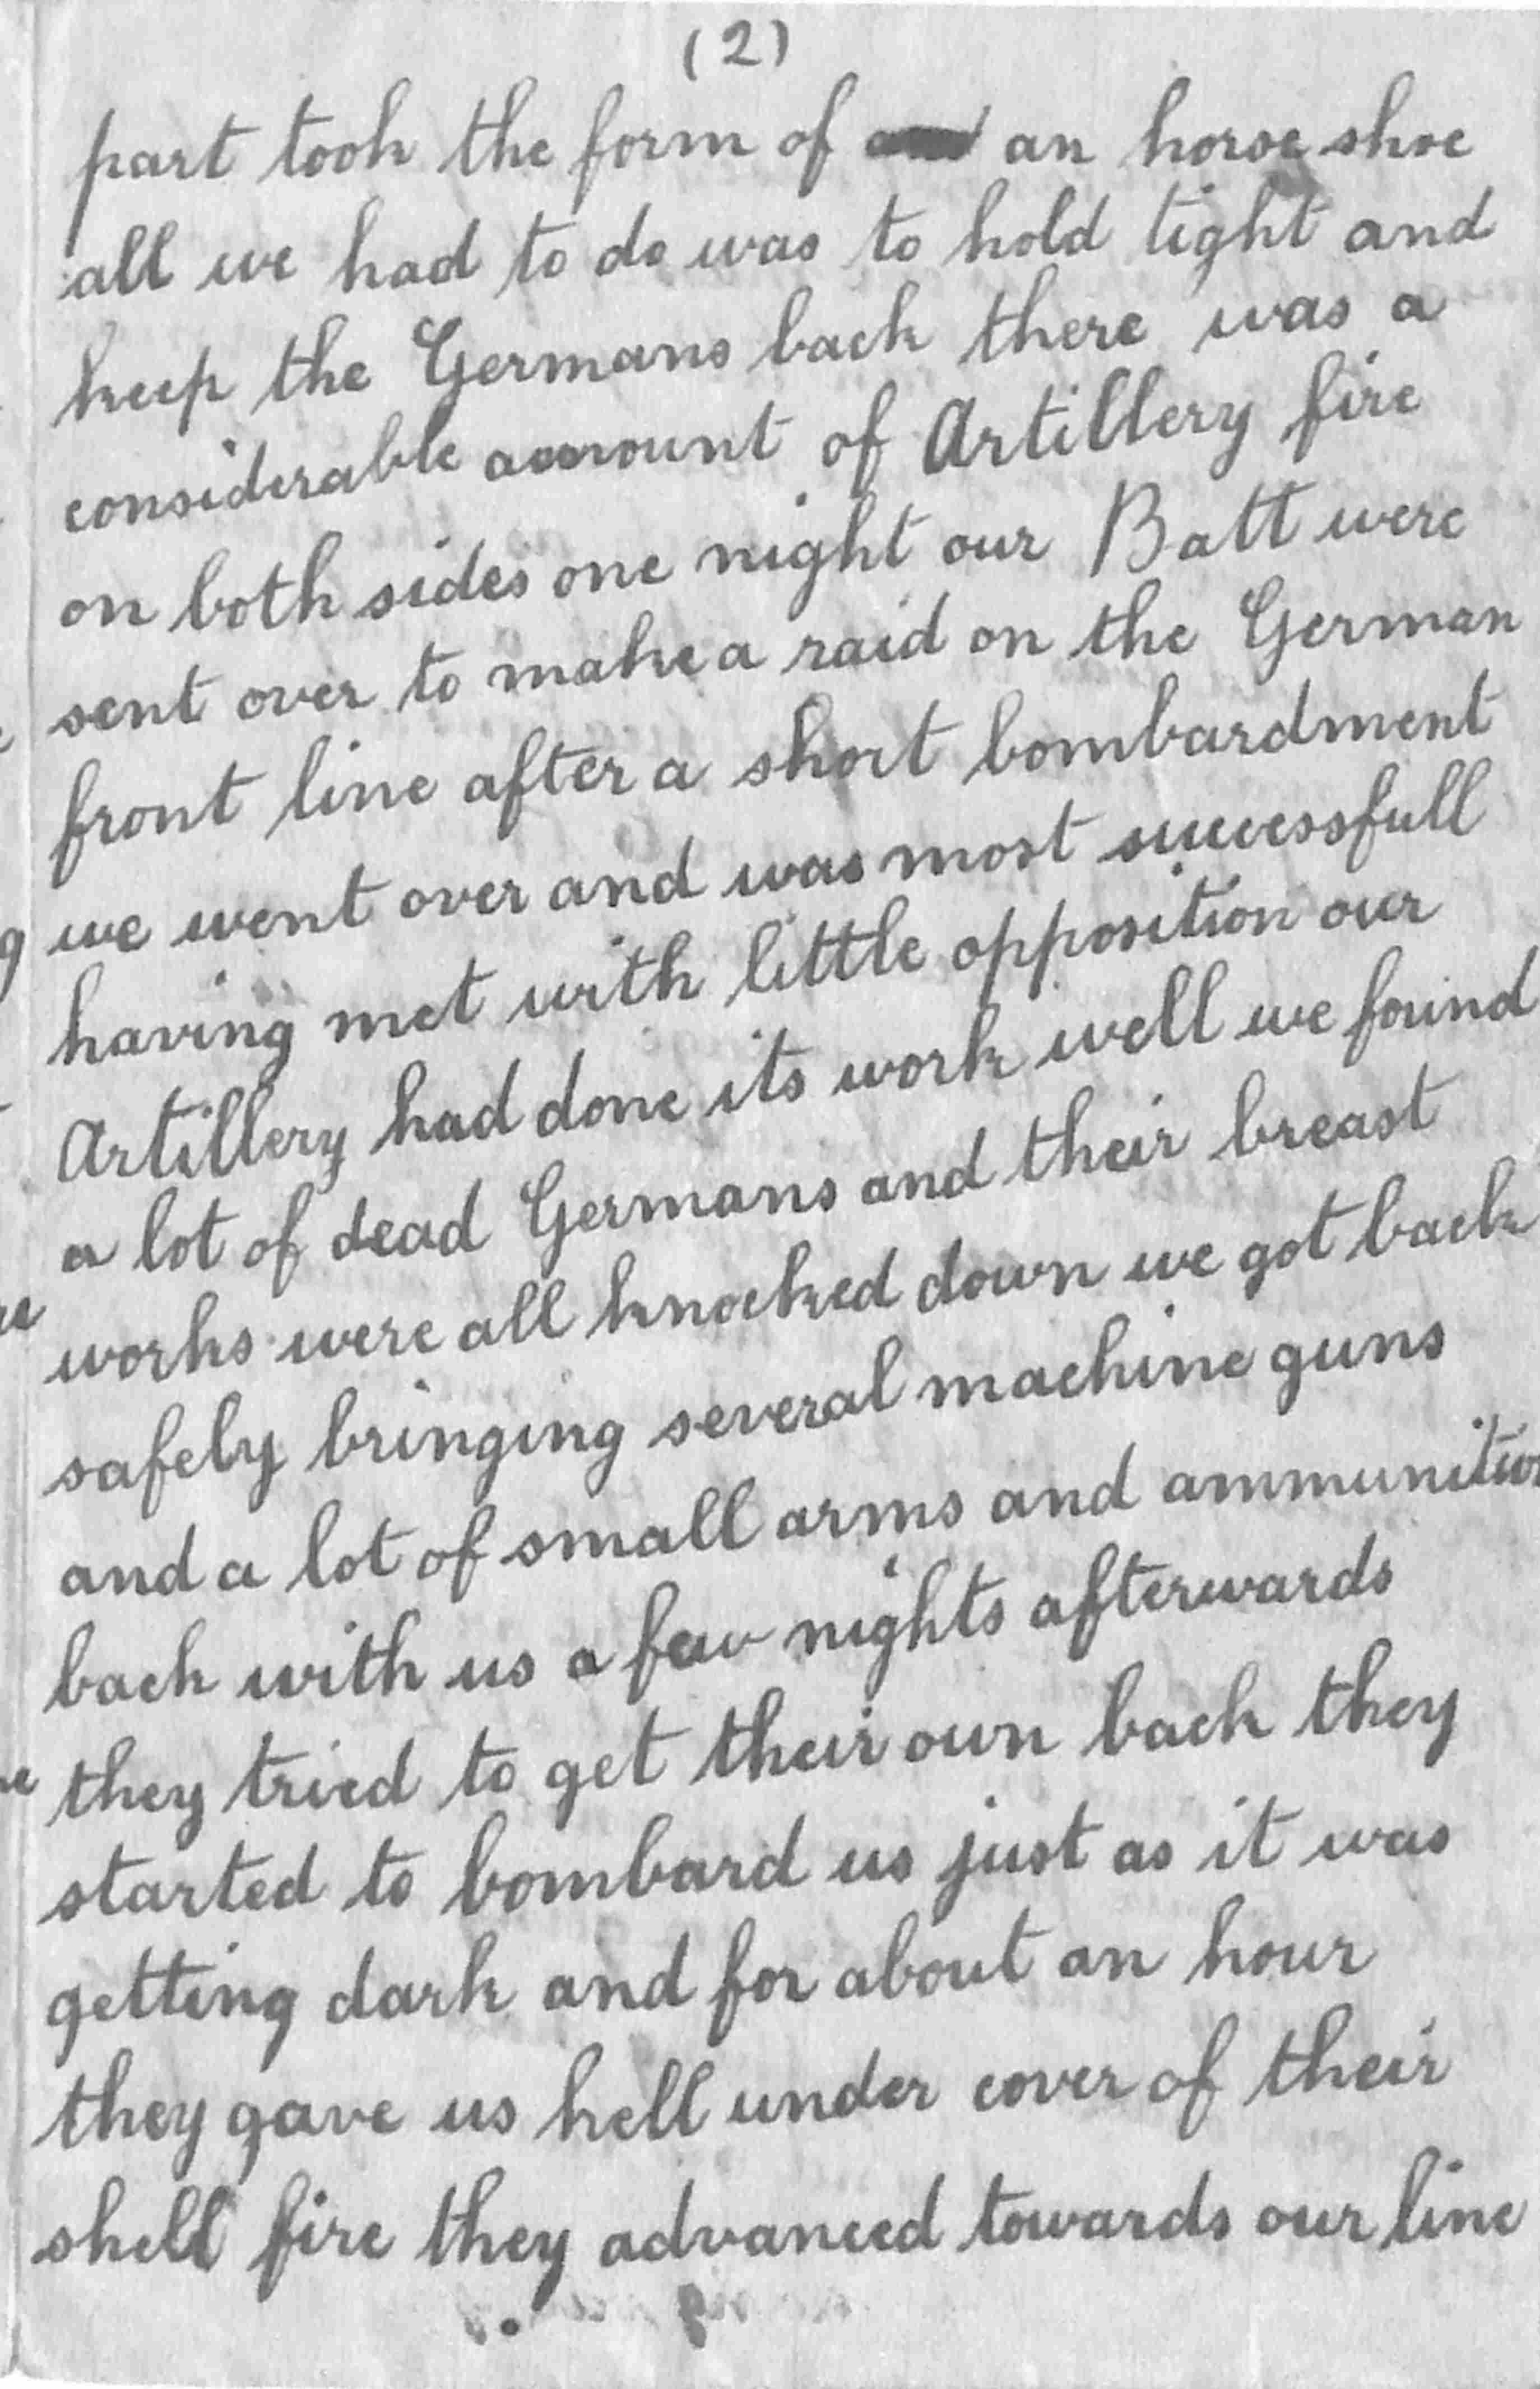 (2)
part took the form of an horse shoe
all we had to do was to hold tight and
keep the Germans back there was a
considerable amount of Artillery fire
on both sides one night our Batt were
sent over to make a raid on the German
front line after a short bombardment
we went over and was most successfull
having met with little opposition our
Artillery had done its work well we found
a lot of dead Germans and their breast
works were all knocked down we got back
safely bringing several machine guns
and a lot of small arms and ammunition
back with us a few nights afterwards
they tried to get their own back they
started to bombard us just as it was
getting dark and for about an hour
they gave us hell under cover of their
shell fire they advanced towards our line